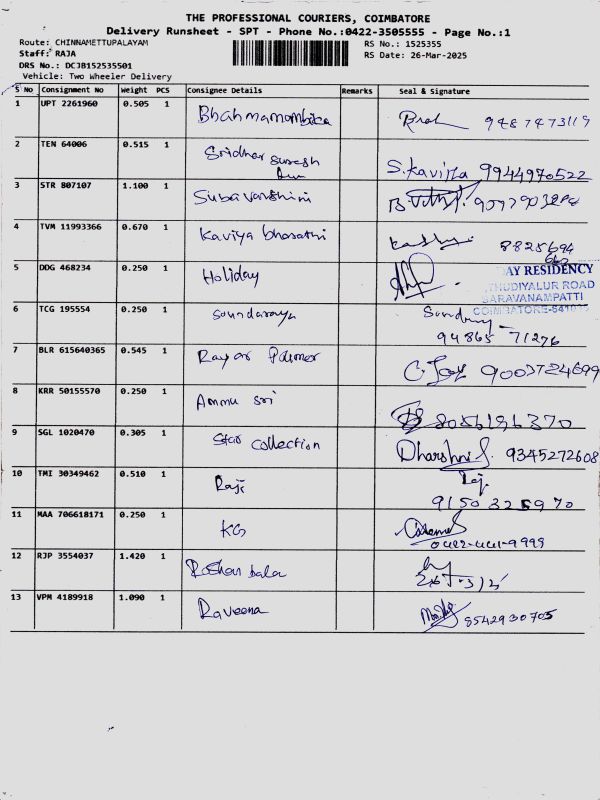 THE PROFESSIONAL COURIERS, COIMBATORE
Delivery Runsheet - SPT - Phone No.:0422-3505555 - Page No.:1
Route: CHINNAMETTUPALAYAM
RS No.: 1525355
Staff: RAJA
RS Date: 26-Mar-2025
DRS No.: DCJB152535501
Vehicle: Two Wheeler Delivery
S No Consignment No Weight PCS Consignee Details Remarks Seal & Signature
1 UPT 2261960 0.505 1 9487473119
2 TEN 64006 0.515 1 Sridhar Suresh S.Kavitta 9944970522
3 STR 807107 1.100 1 Subavarshini
4 TVM 11993366 0.670 1 Kaviya bharathi 8825694
660
5 DDG 468234 0.250 1 Holiday
AY RESIDENCY
THUDIYALUR ROAD
SARAVANAMPATTI
COIMBATORE-641035
6 TCG 195554 0.250 1 Soundaraya
94865 71276
7 BLR 615640365 0.545 1 9003724699
8 KRR 50155570 0.250 1 Ammu sri 8056196370
9 SGL 1020470 0.305 1 Star collection Dharshni S. 9345272608
10 TMI 30349462 0.510 1 Raji Raj.
9150325970
11 MAA 706618171 0.250 1 KG
12 RJP 3554037 1.420 1 Roshan bala
13 VPM 4189918 1.090 1 Raveena 8542930705